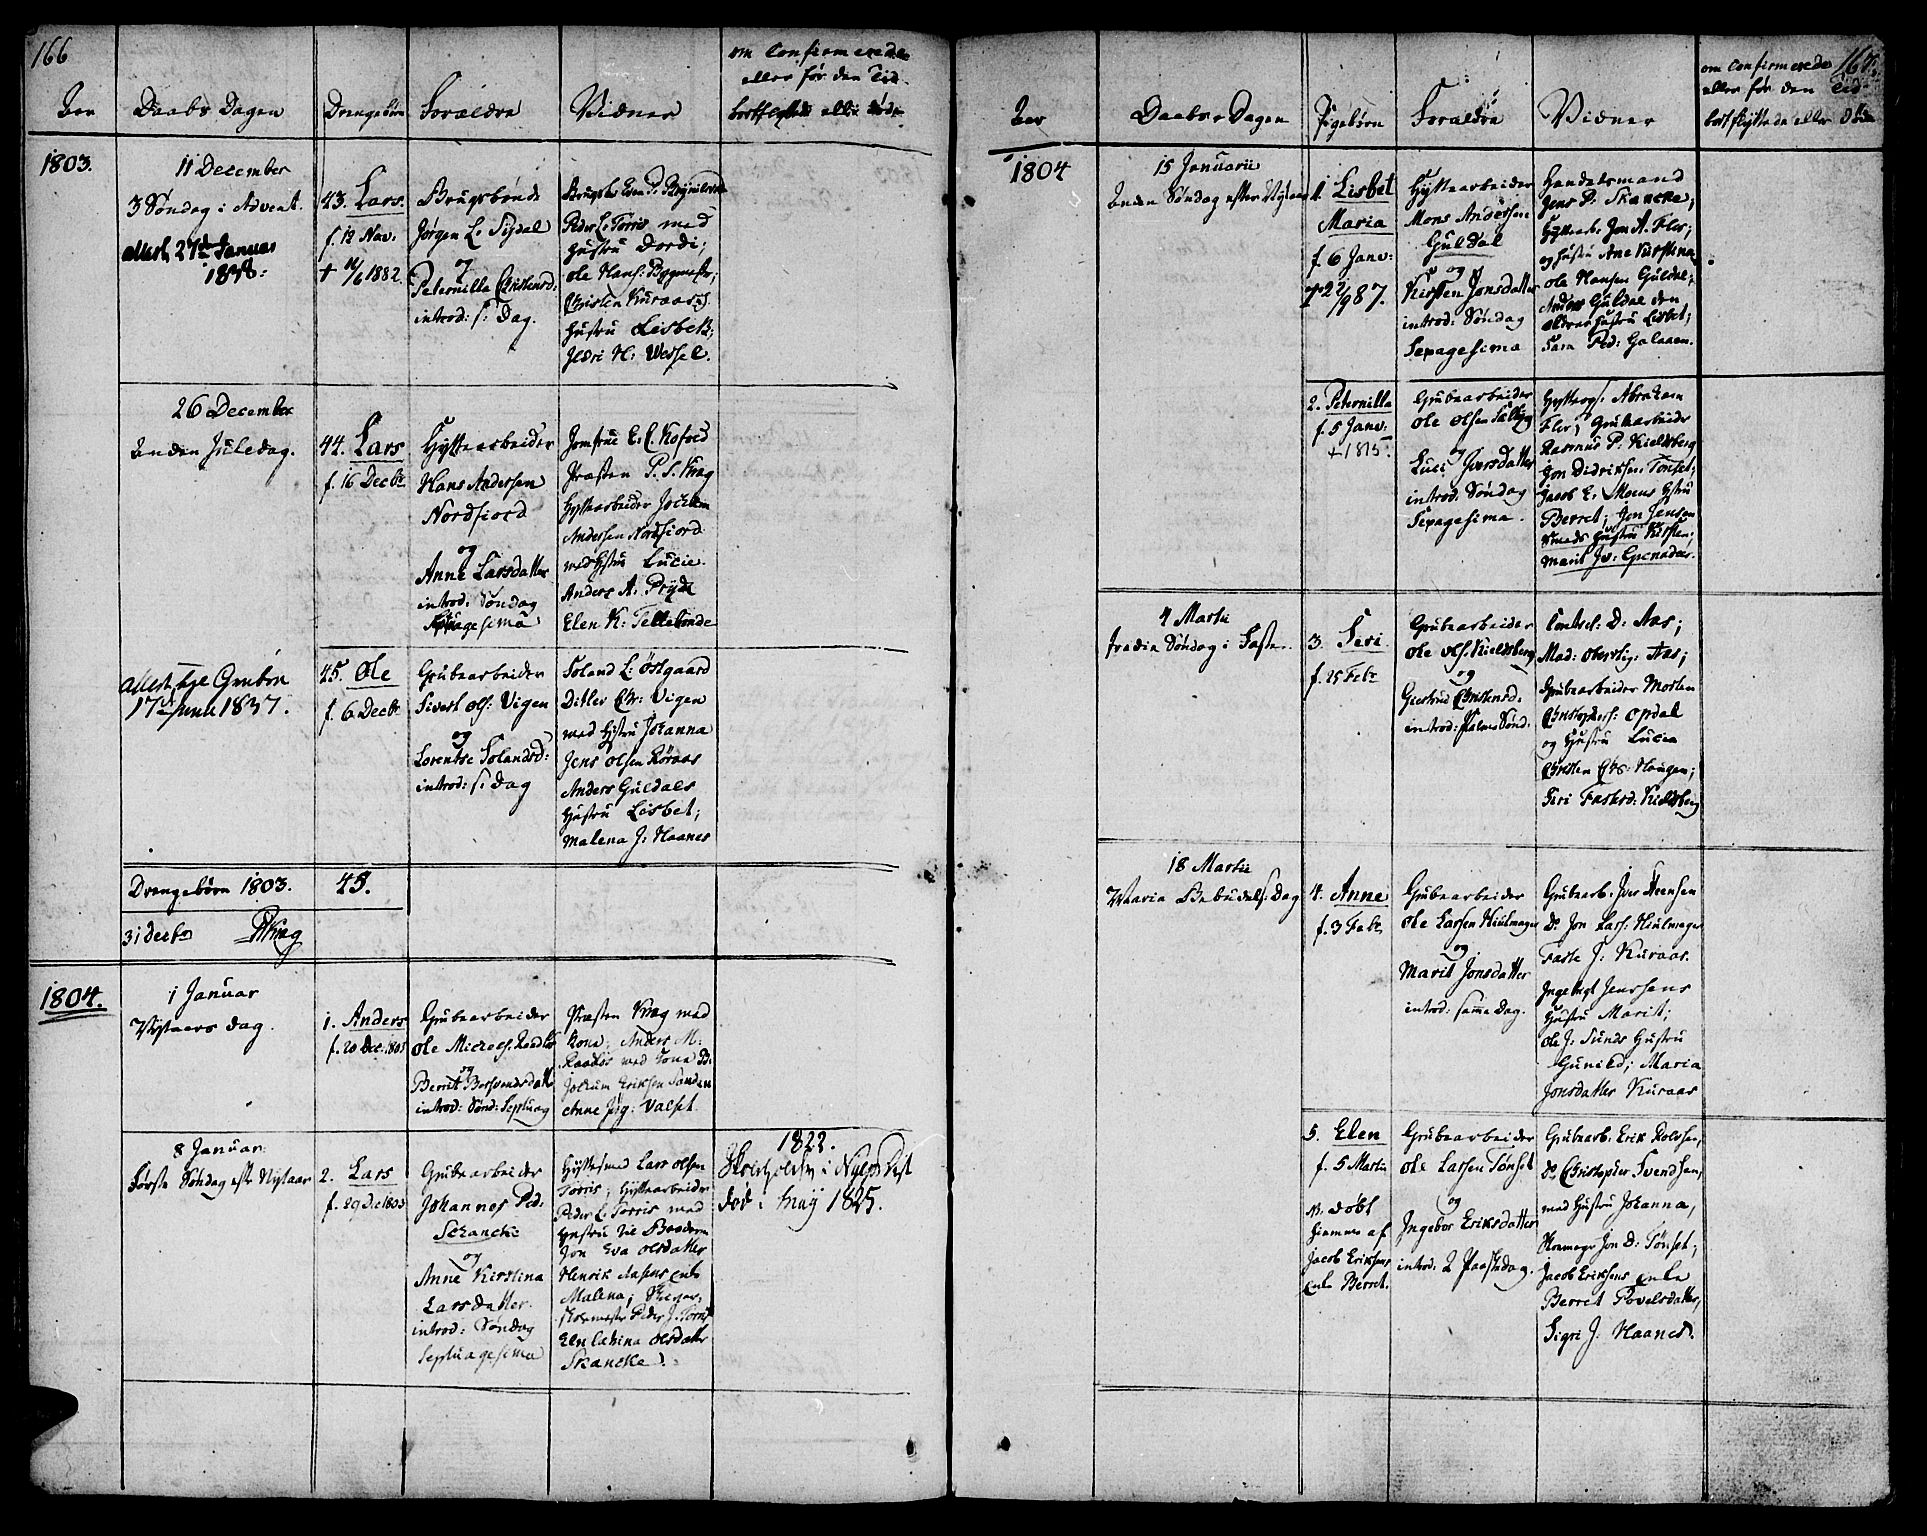 166
Aar
Daabs Dagen
Drengebørn
Forældre
Vidner
om Confirmerede
eller før den Tid
bortflyttede eller døde
1803.
11 December
3 Søndag i Advent.
attest 27de Januar
1848:
43. Lars.
f. 12 Nov:
† 1882.
Brugsbonde
Jørgen L: Sysdal
og
Peternilla Christensd:
introd: s: Dag.
Peder L: Torris med
Hustru Dordi;
Ole Hans: Bygmester;
Christen Kuraas's
Hustru Lisbet;
H: Wessel.
26 December
Anden Juledag.
44. Lars
f. 16 Decbr
Hytteearbeider
Hans Andersen
Nordfiord
og
Anne Larsdatter
introd: Søndag
Septuagesima
Jomfrue E. C. Kofoed
Præsten P. S. Krag
Hyttearbeider Jochum
Andersen Nordfiord
med Hstru Lucie.
Anders A: Pryds
Elen K: Tellebonde
attest, tye Gruben
17de Junii 1837.
45. Ole
f. 6 Decbr
Grubearbeider
Sivert Ols: Vigen
og
Lorentse Tolandsd:
introd: s: Dag
Toland L: Østgaard
Ditlev Chr: Vigen
med Hstru Johanna
Jens Olsen Røraas
Anders Guldals
Hustru Lisbet;
Malena J: Haanes
Drengebørn 1803.
45.
31 Decbr
PKrag
1804.
1 Januar
Nytaars dag.
1. Anders
f. 20 Dec: 1803
Grubearbeider
Ole Michels:
og
Berret Bersvendsdatter
introd: Sønd: Septuag
Præsten Krag med
Kone; Anders M:
med Kone B.
Jochum Eriksen Sanden
Anne Jng: Valset.
8 Januar
Første Søndag efter Nytaar
2. Lars
f. 29 De: 1803
Grubearbeider
Johannes Ped:
Schancke
og
Anne Kirstina
Larsdatter.
introd: Søndag
Septuagesima
Hyttesmed Lars Olsen
Torris; Hyttearbeider
Peder L: Torris med
Hustru
Jon Eva Olsdatter
Henrik Aasens Enke
Malena;
Peder J. Torris
Elen Catrina Olsdatter
Skancke.
1822.
død i Maij 1825.
167.
Aar
Daabs Dagen
Pigebørn
Forældre
Vidner
om Confirmerede
eller før den Tid
bortflyttede eller døde
1804
15 Januarii
Anden Søndag efter Nytaar
1. Lisbet
Maria
f. 6 Janv:
† 22/9 87.
Hyttearbeider
Mons Andersen
Guldal
og
Kirsten Jonsdatter
introd: Søndag
Sexagesima
Handelsmand
Jens P. Skancke;
Hyttearb: Jon A. Flor;
og Hustru Ane Kirstina
Ole Hansen Guldal;
Anders Guldal den
ældres Hustru Lisbet;
Sara Ped: Galaaen.
2. Peternilla
f. 5 Janv:
† 1815.
Grubearbeider
Ole Olsen
og
Luci Iversdatter
introd: Søndag
Sexagesima.
Abraham
Flor; Grubearbeider
Rasmus P: Kieldsberg
Jon Didriksen Tønset;
Jacob E: Moens Hstru
Berret; Jon Jensen
Smeds Hustru Kirsten;
Marit Jv: Grenader.
4 Martii
Tredie Søndag i Faste.
3. Seri
f. 25 Febr
Grubearbeider
Ole Ols. Kieldsberg
og
Giertrud Christensd.
introd: Palme Sønd:
D: Aas;
Mad: Aas;
Grubearbeider Morten
Christophers: Opdal
og Hustru Lucia
Christen Chr: Haugen;
Siri Fastesd: Kieldsberg
18 Martii
Maria Bebudels: Dag
4. Anne
f. 3 Febr
Grubearbeider
Ole Larsen Hiulmager
og
Marit Jonsdatter
introd: samme dag.
Grubearb: Iver Steensen
Do Jon Lars: Hiulmager
Faste J: Kuraas.
Ingebrigt Jenssens
Hustru Marit;
Ole J: Sunds Hustru
Gunild; Maria
Jonsdatter Kuraas
5. Elen
f. 5 Martii
N. døbt
hiemme af
Jacob Eriksens
Enke Berret.
Grubearbeider
Ole Larsen Tønset
og
Ingebor Eriksdatter
introd: 2 Paaskedag.
Grubearb: Erik Rolosen,
Do Christopher Svendsen,
med Hustru Johanna,
Jon D: Tønset;
Jacob Eriksens Enke
Berret Povelsdatter,
Sigri J: Haanes.